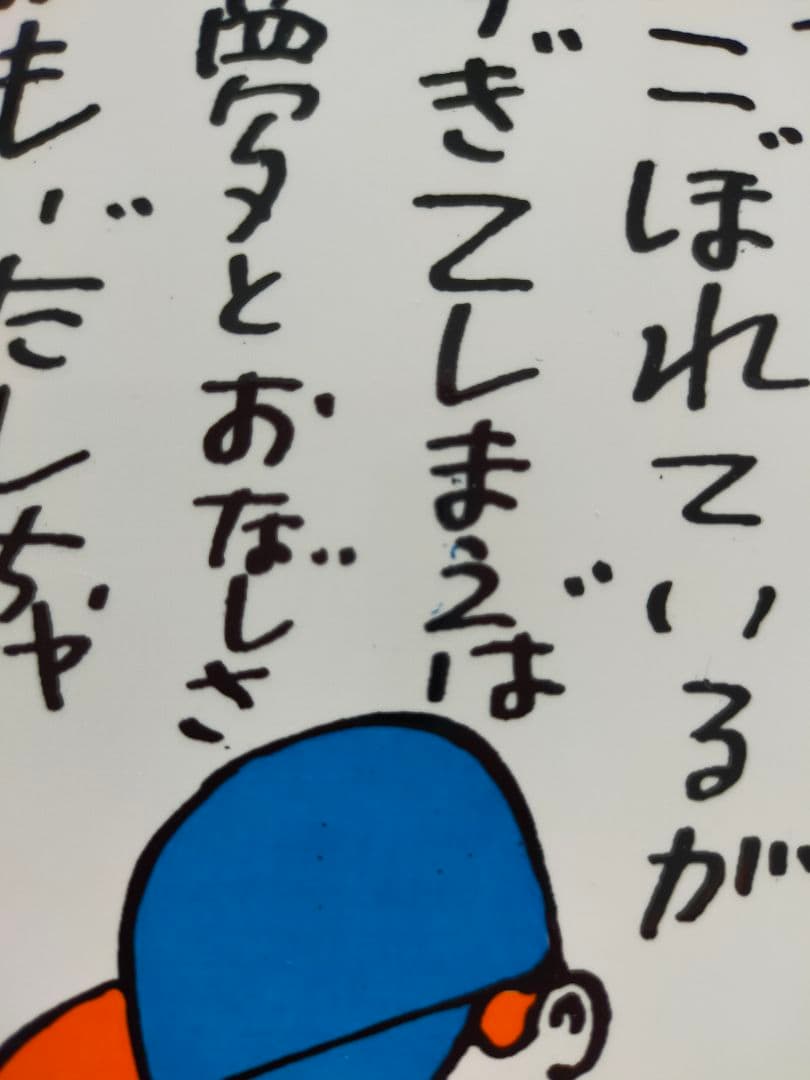 こぼれているが
ぎてしまえば
夢とおなじさ
もいだしちゃ